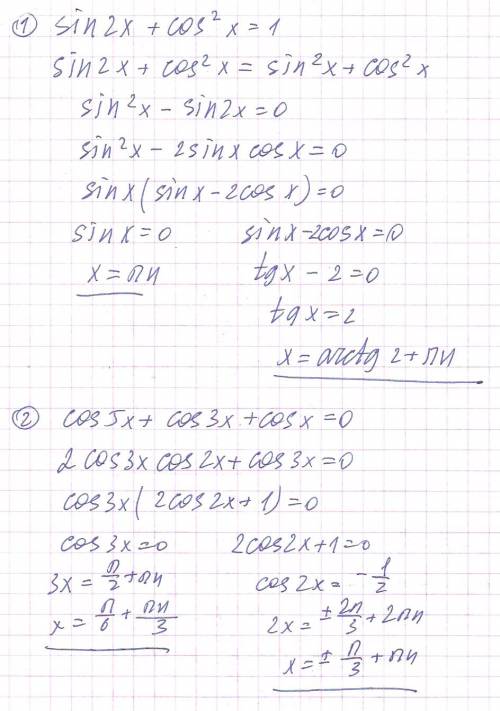 ① sin2x + cos²x = 1
sin2x + cos²x = sin²x + cos²x
sin²x - sin2x = 0
sin²x - 2sinx cosx = 0
sinx(sinx - 2cosx) = 0
sinx = 0 sinx - 2cosx = 0
x = πn tgx - 2 = 0
tgx = 2
x = arctg 2 + πn
② cos5x + cos3x + cosx = 0
2cos3x cos2x + cos3x = 0
cos3x(2cos2x + 1) = 0
cos3x = 0 2cos2x + 1 = 0
3x = π/2 + πn cos2x = -1/2
x = π/6 + πn/3 2x = ± 2π/3 + 2πn
x = ± π/3 + πn